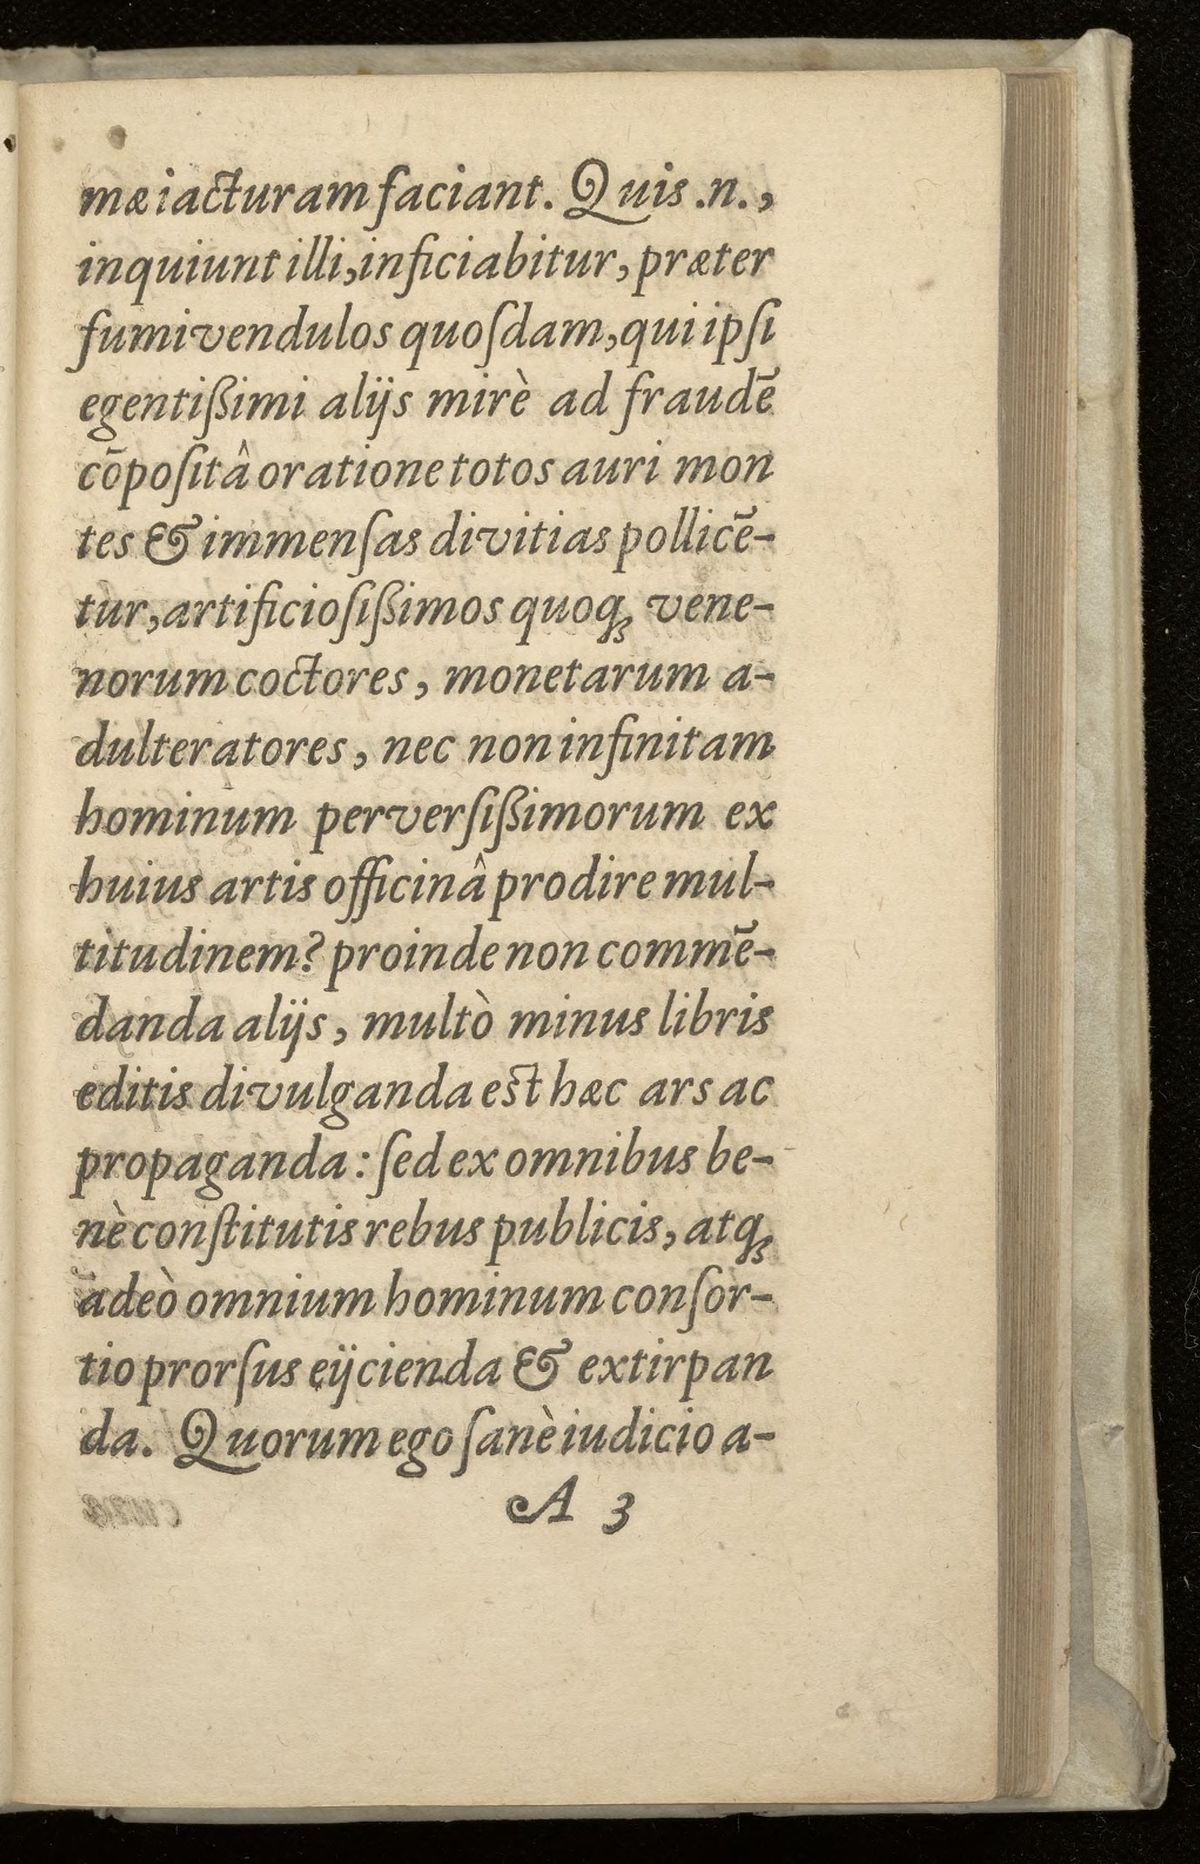 mæ iacturam faciant. Quis .n.,
inquiunt illi, inficiabitur, præter
fumivendulos quoſdam, qui ipſi
egentißimi alijs mirè ad fraudē
cōpoſitâ oratione totos auri mon
tes & immenſas divitias pollicē-
tur, artificioſißimos quoqꝫ vene-
norum coctores, monetarum a-
dulteratores, nec non infinitam
hominum perverſißimorum ex
huius artis officinâ prodire mul-
titudinem? proinde non commē-
danda alijs, multò minus libris
editis divulganda est hæc ars ac
propaganda: ſed ex omnibus be-
nè conſtitutis rebus publicis, atqꝫ
adeò omnium hominum conſor-
tio prorſus eijcienda & extirpan
da. Quorum ego ſanè iudicio a-
A 3